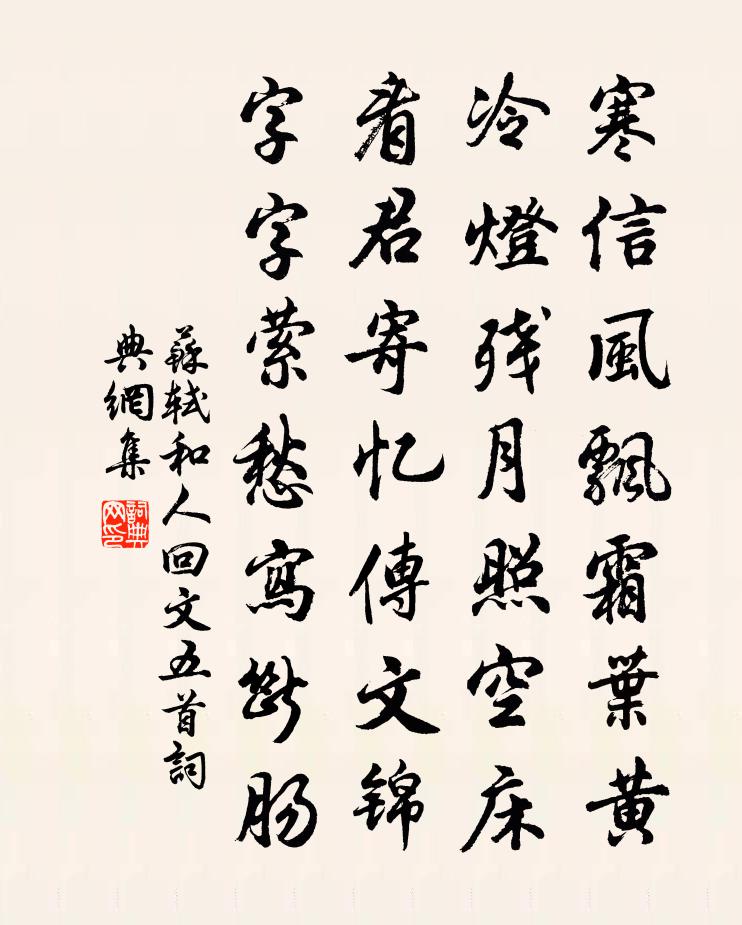 寒信風飄霜葉黃
冷燈残月照空床
看君寄忆傳文錦
字字萦愁寫斷肠
蘇軾和人回文五首詞
典網集
詞典
网印